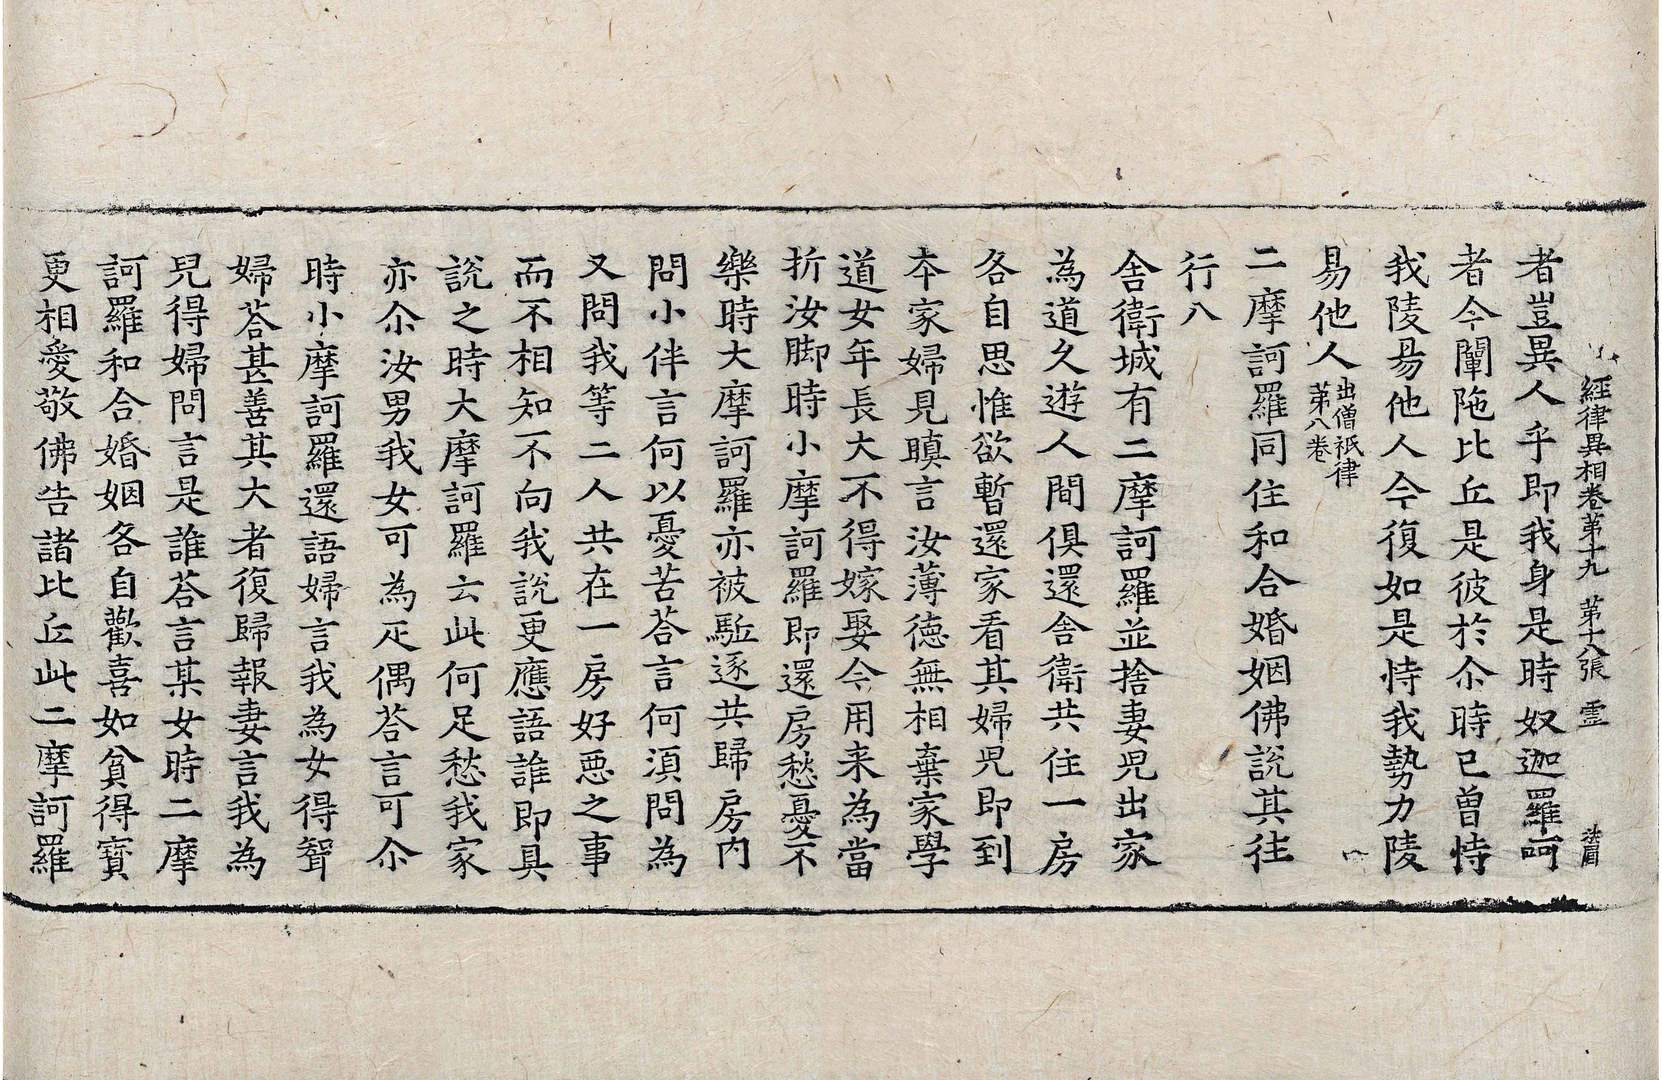 經律異相卷第十九 第十八張 霊 法眉
者豈異人乎即我身是時奴迦羅呵
者今闡陁比丘是彼於尒時已曾恃
我陵易他人今復如是恃我勢力陵
易他人出僧祇律第八卷
二摩訶羅同住和合婚姻佛說其往
行八
舎衛城有二摩訶羅並捨妻兒出家
為道久遊人間俱還舎衛共住一房
各自思惟欲暫還家看其婦兒即到
本家婦見瞋言汝薄徳無相棄家學
道女年長大不得嫁娶今用来為當
折汝脚時小摩訶羅即還房愁憂不
樂時大摩訶羅亦被駈逐共歸房内
問小伴言何以憂苦荅言何湏問為
又問我等二人共在一房好惡之事
而不相知不向我說更應語誰即具
說之時大摩訶羅云此何足愁我家
亦尒汝男我女可為疋偶荅言可尒
時小摩訶羅還語婦言我為女得聟
婦荅甚善其大者復歸報妻言我為
兒得婦問言是誰荅言某女時二摩
訶羅和合婚姻各自歡喜如貧得寶
更相愛敬佛告諸比丘此二摩訶羅